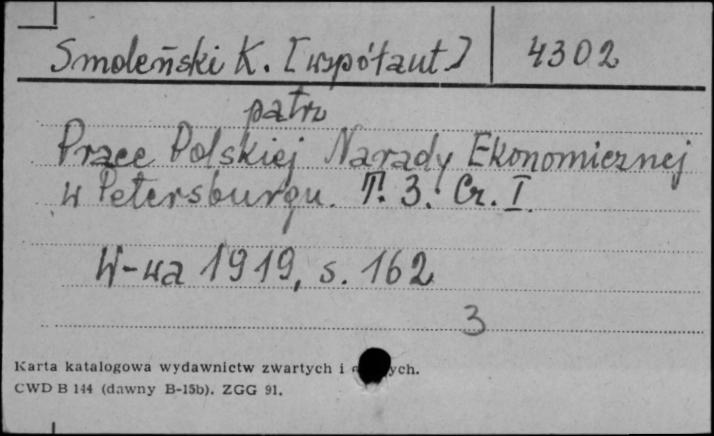 Smoleński K. [współaut.] 4302
patrz
Prace Polskiej Narady Ekonomicznej
w Petersburgu. T. 3. Cz. I
W-wa 1919, s. 162
3
Karta katalogowa wydawnictw zwartych i
CWD B 144 (dawny B-15b). ZGG 91.